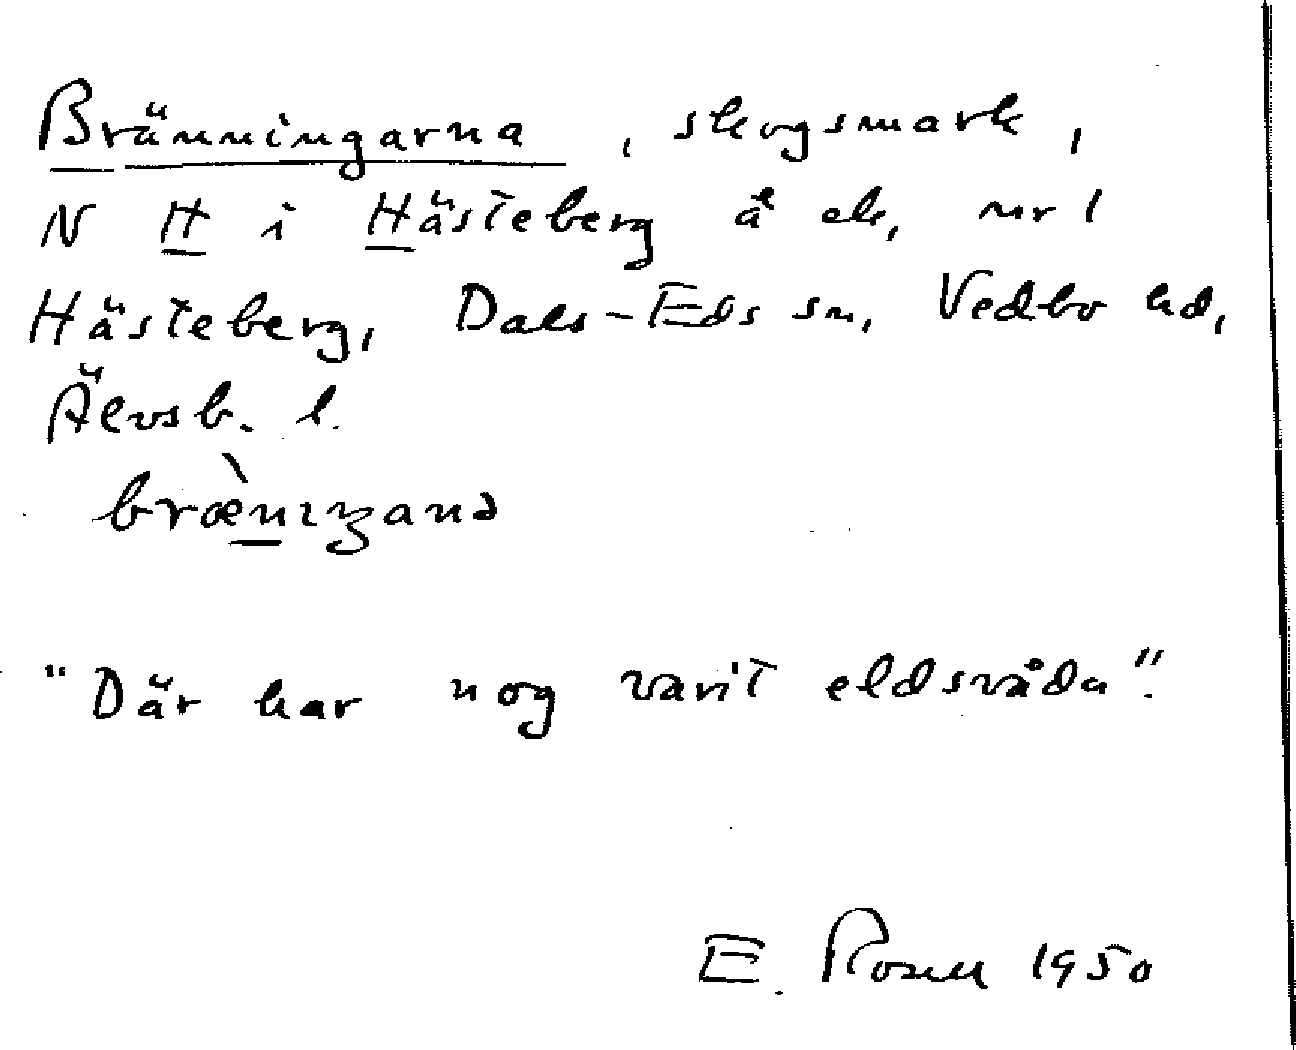 Bränningarna, skogsmark,
N H i Hästeberg å ek, nr 1
Hästeberg, Dals-Eds sn, Vedbo hd,
Älvsb. l.
"Där har nog varit eldsvåda".
E. Rosell 1950